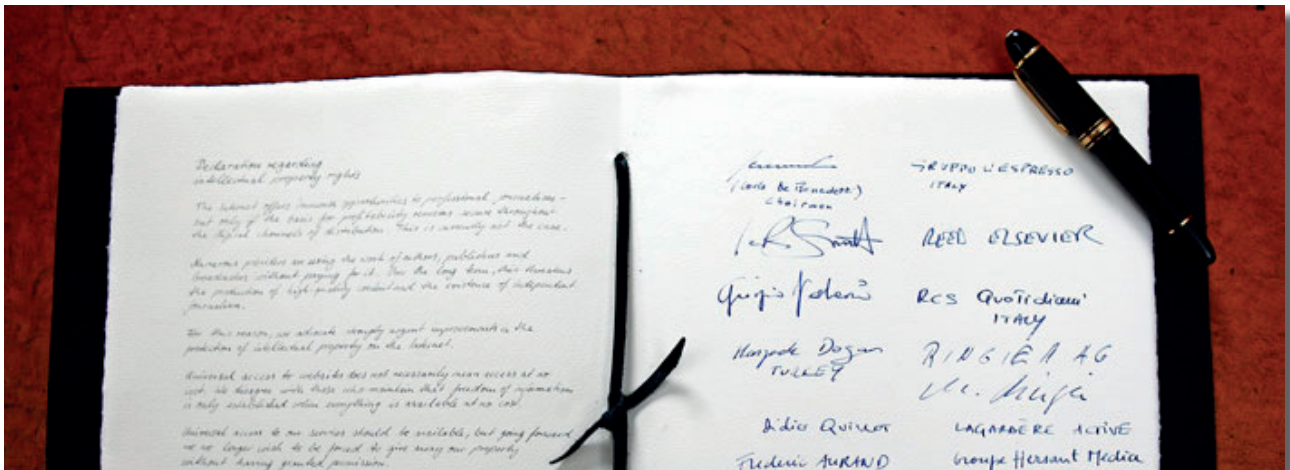 Declaration regarding
intellectual property rights
The internet offers immense opportunities to professional journalism –
but only if the basis for profitability remains secure throughout
the digital channels of distribution. This is currently not the case.
Numerous providers are using the work of authors, publishers and
broadcasters without paying for it. Over the long term, this threatens
the production of high-quality content and the existence of independent
journalism.
For this reason, we advocate strongly urgent improvements in the
protection of intellectual property on the internet.
Universal access to websites does not necessarily mean access at no
cost. We disagree with those who maintain that freedom of information
is only established when everything is available at no cost.
Universal access to our services should be available, but going forward
we no longer wish to be forced to give away our property
without having granted permission.
(Carlo De Benedetti)
Chairman
GRUPPO L'ESPRESSO
ITALY
REED ELSEVIER
RCS Quotidiani
ITALY
Dogan
TURKEY
RINGIER AG
Didier QUILLOT
LAGARDERE ACTIVE
Frederic AURAND
Groupe Hersant Media